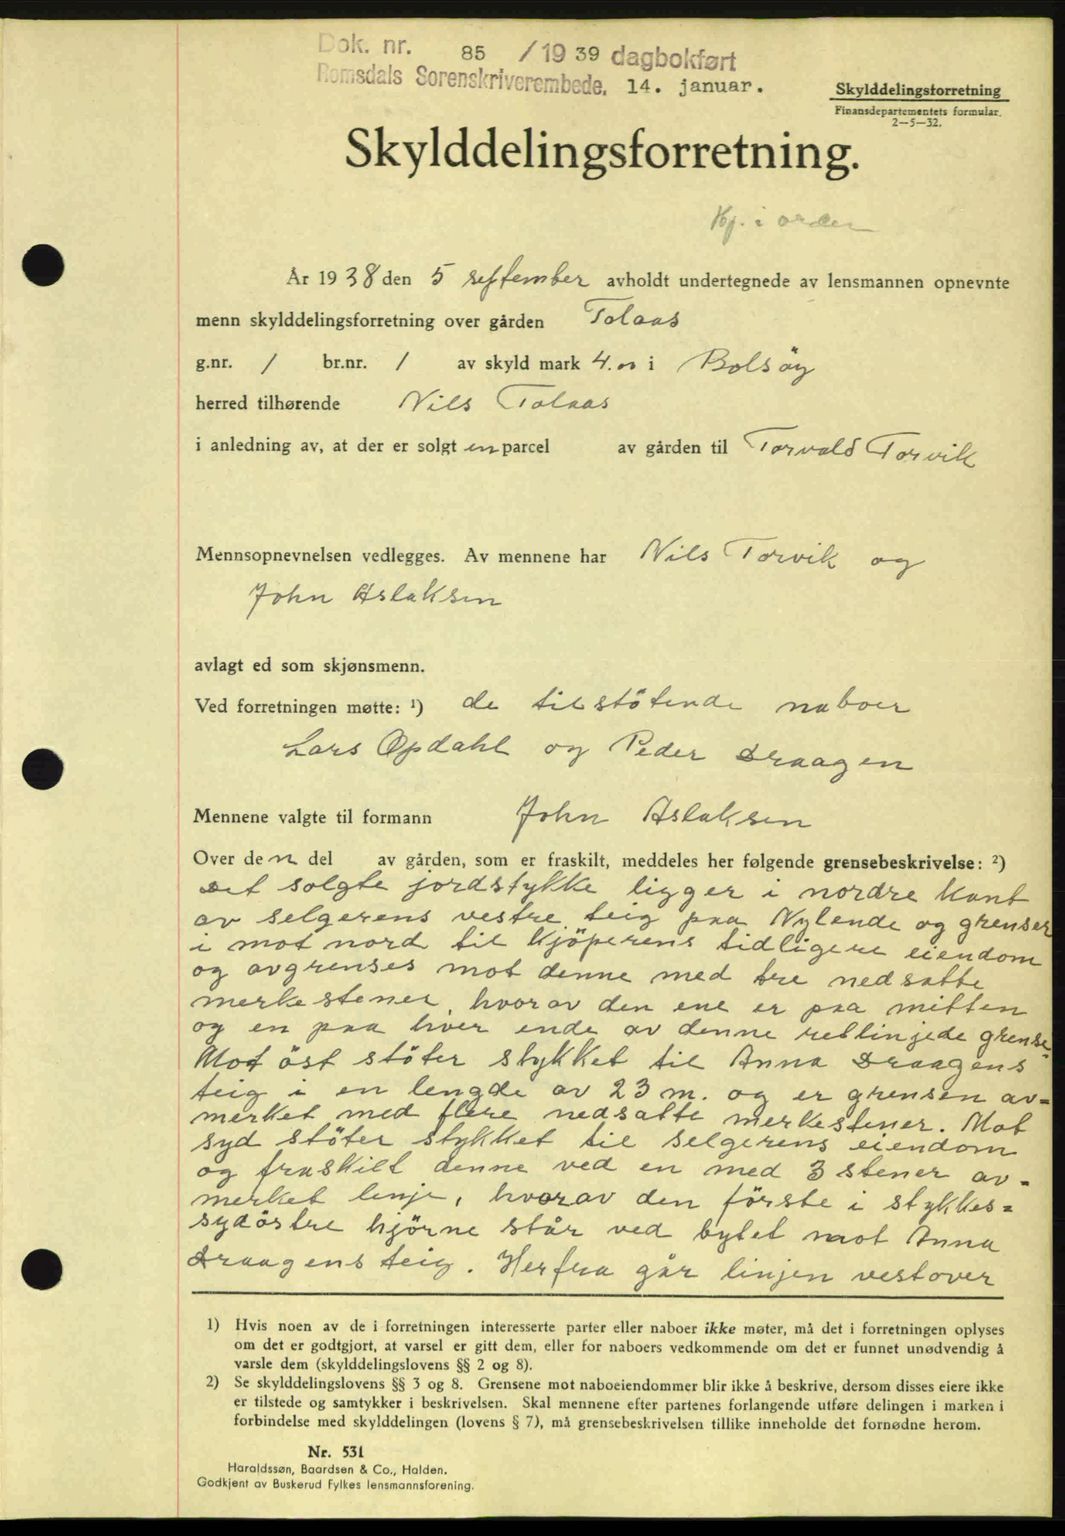 Dok. nr. 85 / 1939 dagbokført
Romsdals Sorenskriverembede, 14. januar.
Skylddelingsforretning
Finansdepartementets formular.
2—5—32.
Skylddelingsforretning.
Kf. i orden
År 1938 den 5 september avholdt undertegnede av lensmannen opnevnte
menn skylddelingsforretning over gården Tolaas
g.nr. 1 br.nr. 1 av skyld mark 4.00 i Bolsöy
herred tilhørende Nils Tolaas
i anledning av, at der er solgt en parcel av gården til Torvald Torvik
Mennsopnevnelsen vedlegges. Av mennene har Nils Torvik og
John Aslaksen
avlagt ed som skjønsmenn.
Ved forretningen møtte: ¹) de tilstötende naboer
Lars Opdahl og Peder Draagen
Mennene valgte til formann John Aslaksen
Over den del av gården, som er fraskilt, meddeles her følgende grensebeskrivelse: ²)
Det solgte jordstykke ligger i nordre kant
av selgerens vestre teig paa Nylende og grenser
i mot nord til kjöperens tidligere eiendom
og avgrenses mot denne med tre nedsatte
merkestener, hvorav den ene er paa mitten
og en paa hver ende av denne retlinjede grense.
Mot öst stöter stykket til Anna Draagens
teig i en lengde av 23 m. og er grensen av=
merket med flere nedsatte merkestener. Mot
syd stöter stykket til selgerens eiendom
og fraskilt denne ved en med 3 stener av=
merket linje, hvorav den förste i stykkes=
sydöstre hjörne står ved bytet mot Anna
Draagens teig. Herfra går linjen vestover
1) Hvis noen av de i forretningen interesserte parter eller naboer ikke møter, må det i forretningen oplyses
om det er godtgjort, at varsel er gitt dem, eller for naboers vedkommende om det er funnet unødvendig å
varsle dem (skylddelingslovens §§ 2 og 8).
2) Se skylddelingslovens §§ 3 og 8. Grensene mot naboeiendommer blir ikke å beskrive, dersom disses eiere ikke
er tilstede og samtykker i beskrivelsen. Skal mennene efter partenes forlangende utføre delingen i marken i
forbindelse med skylddelingen (lovens § 7), må grensebeskrivelsen tillike inneholde det fornødne herom.
Nr. 531
Haraldssøn, Baardsen & Co., Halden.
Godkjent av Buskerud Fylkes lensmannsforening.